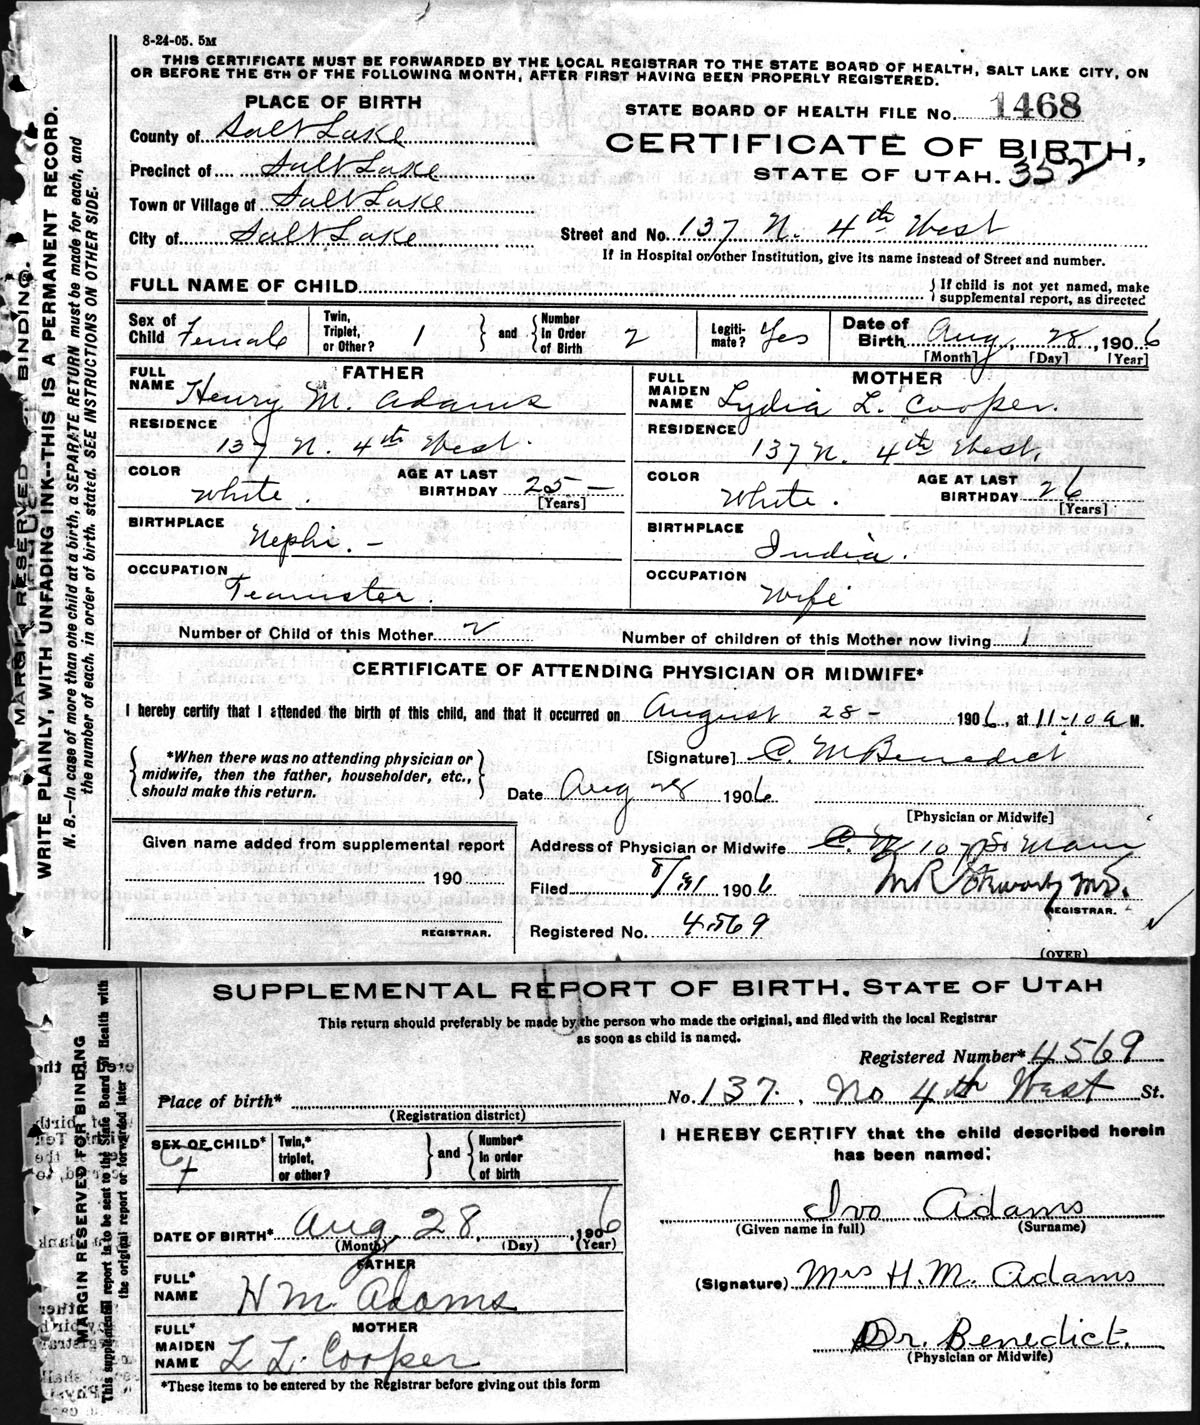 8-24-05. 5M
THIS CERTIFICATE MUST BE FORWARDED BY THE LOCAL REGISTRAR TO THE STATE BOARD OF HEALTH, SALT LAKE CITY, ON
OR BEFORE THE 5TH OF THE FOLLOWING MONTH, AFTER FIRST HAVING BEEN PROPERLY REGISTERED.
PLACE OF BIRTH
STATE BOARD OF HEALTH FILE No. 1468
County of Salt Lake
CERTIFICATE OF BIRTH,
Precinct of Salt Lake
STATE OF UTAH. 352
Town or Village of Salt Lake
City of Salt Lake
Street and No. 137 N. 4th West
If in Hospital or other Institution, give its name instead of Street and number.
FULL NAME OF CHILD
If child is not yet named, make
supplemental report, as directed
Sex of Child Female
Twin, Triplet, or Other? 1
and
Number In Order of Birth 2
Legiti-mate? Yes
Date of Birth Aug. 28, 1906
[Month] [Day] [Year]
FATHER
FULL NAME Henry M. Adams
RESIDENCE
137 N. 4th West.
COLOR White.
AGE AT LAST BIRTHDAY 25 —
[Years]
BIRTHPLACE
Nephi. -
OCCUPATION
Teamster.
MOTHER
FULL MAIDEN NAME Lydia L. Cooper.
RESIDENCE
137 N. 4th West.
COLOR White.
AGE AT LAST BIRTHDAY 26
[Years]
BIRTHPLACE
India.
OCCUPATION
Wife
Number of Child of this Mother 2
Number of children of this Mother now living 1
CERTIFICATE OF ATTENDING PHYSICIAN OR MIDWIFE*
I hereby certify that I attended the birth of this child, and that it occurred on August 28 - 1906, at 11-10 a M.
*When there was no attending physician or
midwife, then the father, householder, etc.,
should make this return.
[Signature] C. M Benedict
Date Aug 28 1906
[Physician or Midwife]
Given name added from supplemental report
190
REGISTRAR.
Address of Physician or Midwife 107 So Main
Filed 8/31 1906
M.D.
REGISTRAR.
Registered No. 4569
(OVER)
MARGIN RESERVED FOR BINDING.
WRITE PLAINLY, WITH UNFADING INK--THIS IS A PERMANENT RECORD.
N. B.—In case of more than one child at a birth, a SEPARATE RETURN must be made for each, and
the number of each, in order of birth, stated. SEE INSTRUCTIONS ON OTHER SIDE.
SUPPLEMENTAL REPORT OF BIRTH, STATE OF UTAH
This return should preferably be made by the person who made the original, and filed with the local Registrar
as soon as child is named.
Registered Number* 4569
Place of birth*
(Registration district)
No. 137. , No 4th West St.
SEX OF CHILD*
f
Twin,* triplet, or other?
and
Number* In order of birth
I HEREBY CERTIFY that the child described herein
has been named:
DATE OF BIRTH* Aug. 28, 1906
(Month) (Day) (Year)
Ivo Adams
(Given name in full) (Surname)
FATHER
FULL* NAME H M. Adams
(Signature) Mrs H. M. Adams
MOTHER
FULL* MAIDEN NAME L L. Cooper
Dr. Benedict.
(Physician or Midwife)
*These items to be entered by the Registrar before giving out this form
MARGIN RESERVED FOR BINDING
This supplemental report is to be sent to the State Board of Health with
the original report or forwarded later